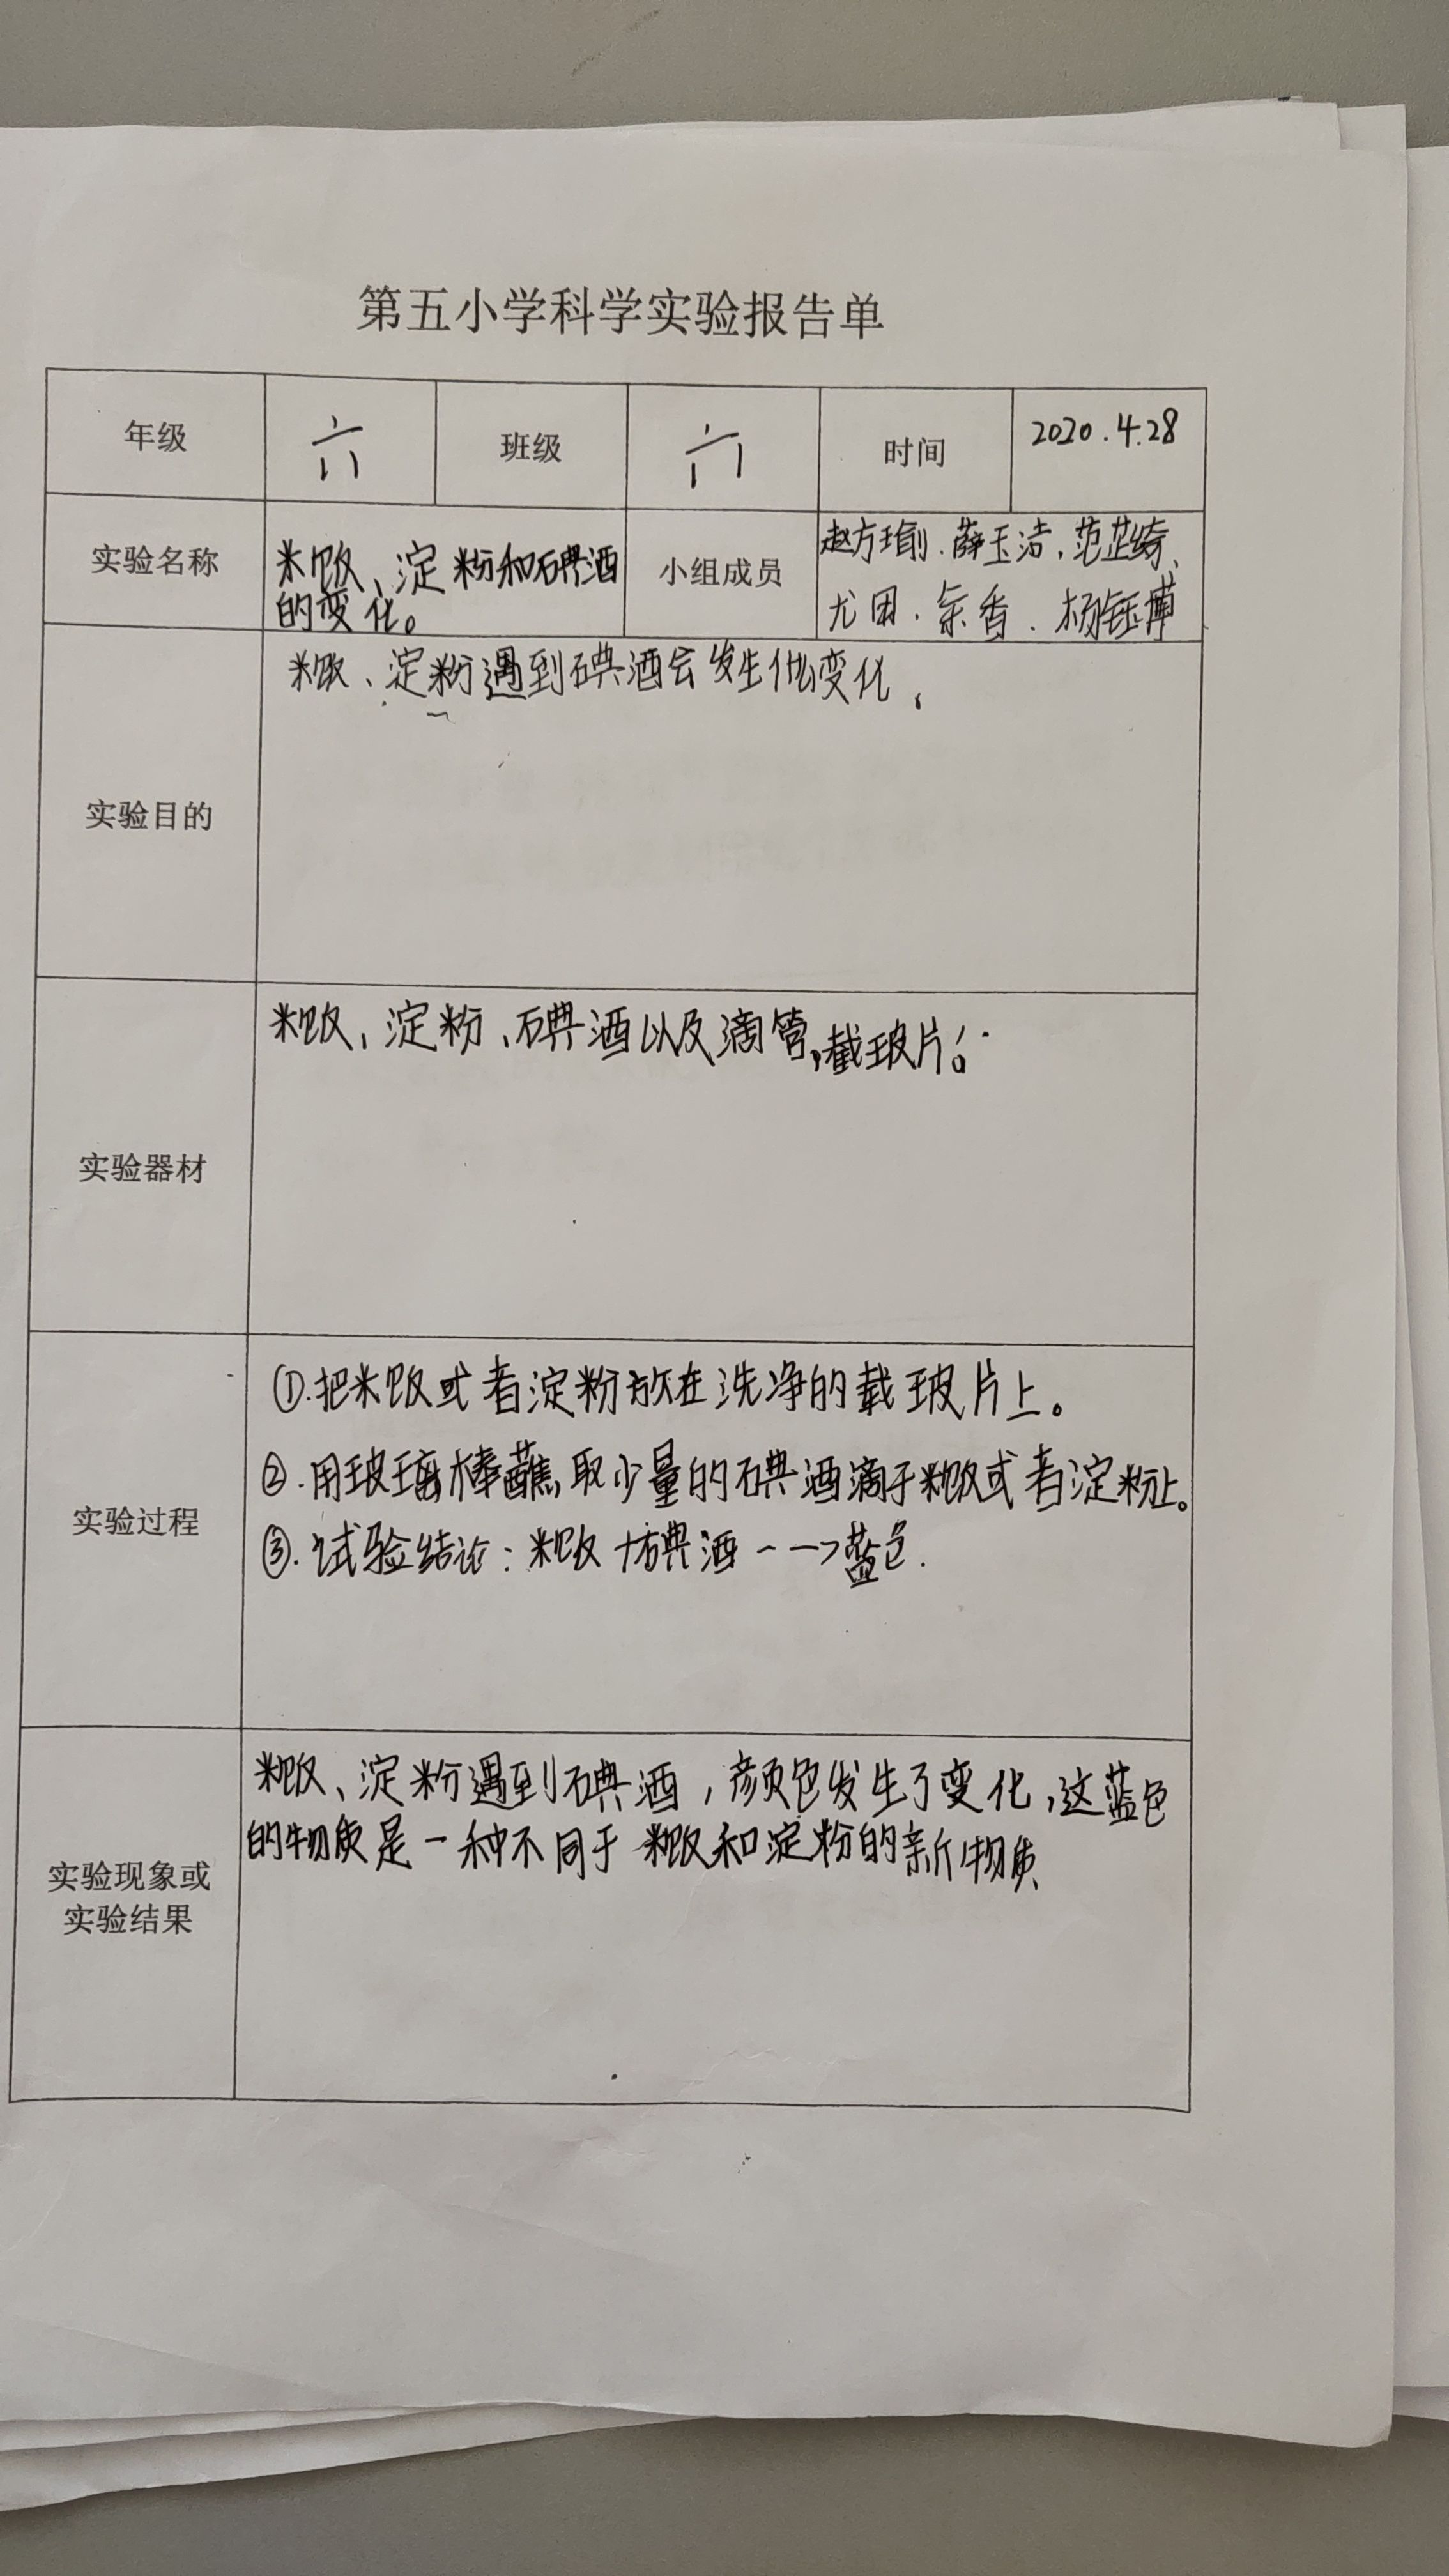 第五小学科学实验报告单
年级 六 班级 六 时间 2020.4.28
实验名称 米饭、淀粉和碘酒
的变化。
小组成员 赵方瑜、薛玉洁、范芷绮、
尤团、余香、杨钰萍
实验目的 米饭、淀粉遇到碘酒会发生什么变化。
实验器材 米饭、淀粉、碘酒以及滴管,截玻片。
实验过程
①.把米饭或者淀粉放在洗净的载玻片上。
②.用玻璃棒蘸取少量的碘酒滴于米饭或者淀粉上。
③.试验结论:米饭+碘酒--→蓝色.
实验现象或
实验结果
米饭、淀粉遇到碘酒,颜色发生了变化,这蓝色
的物质是一种不同于米饭和淀粉的新物质